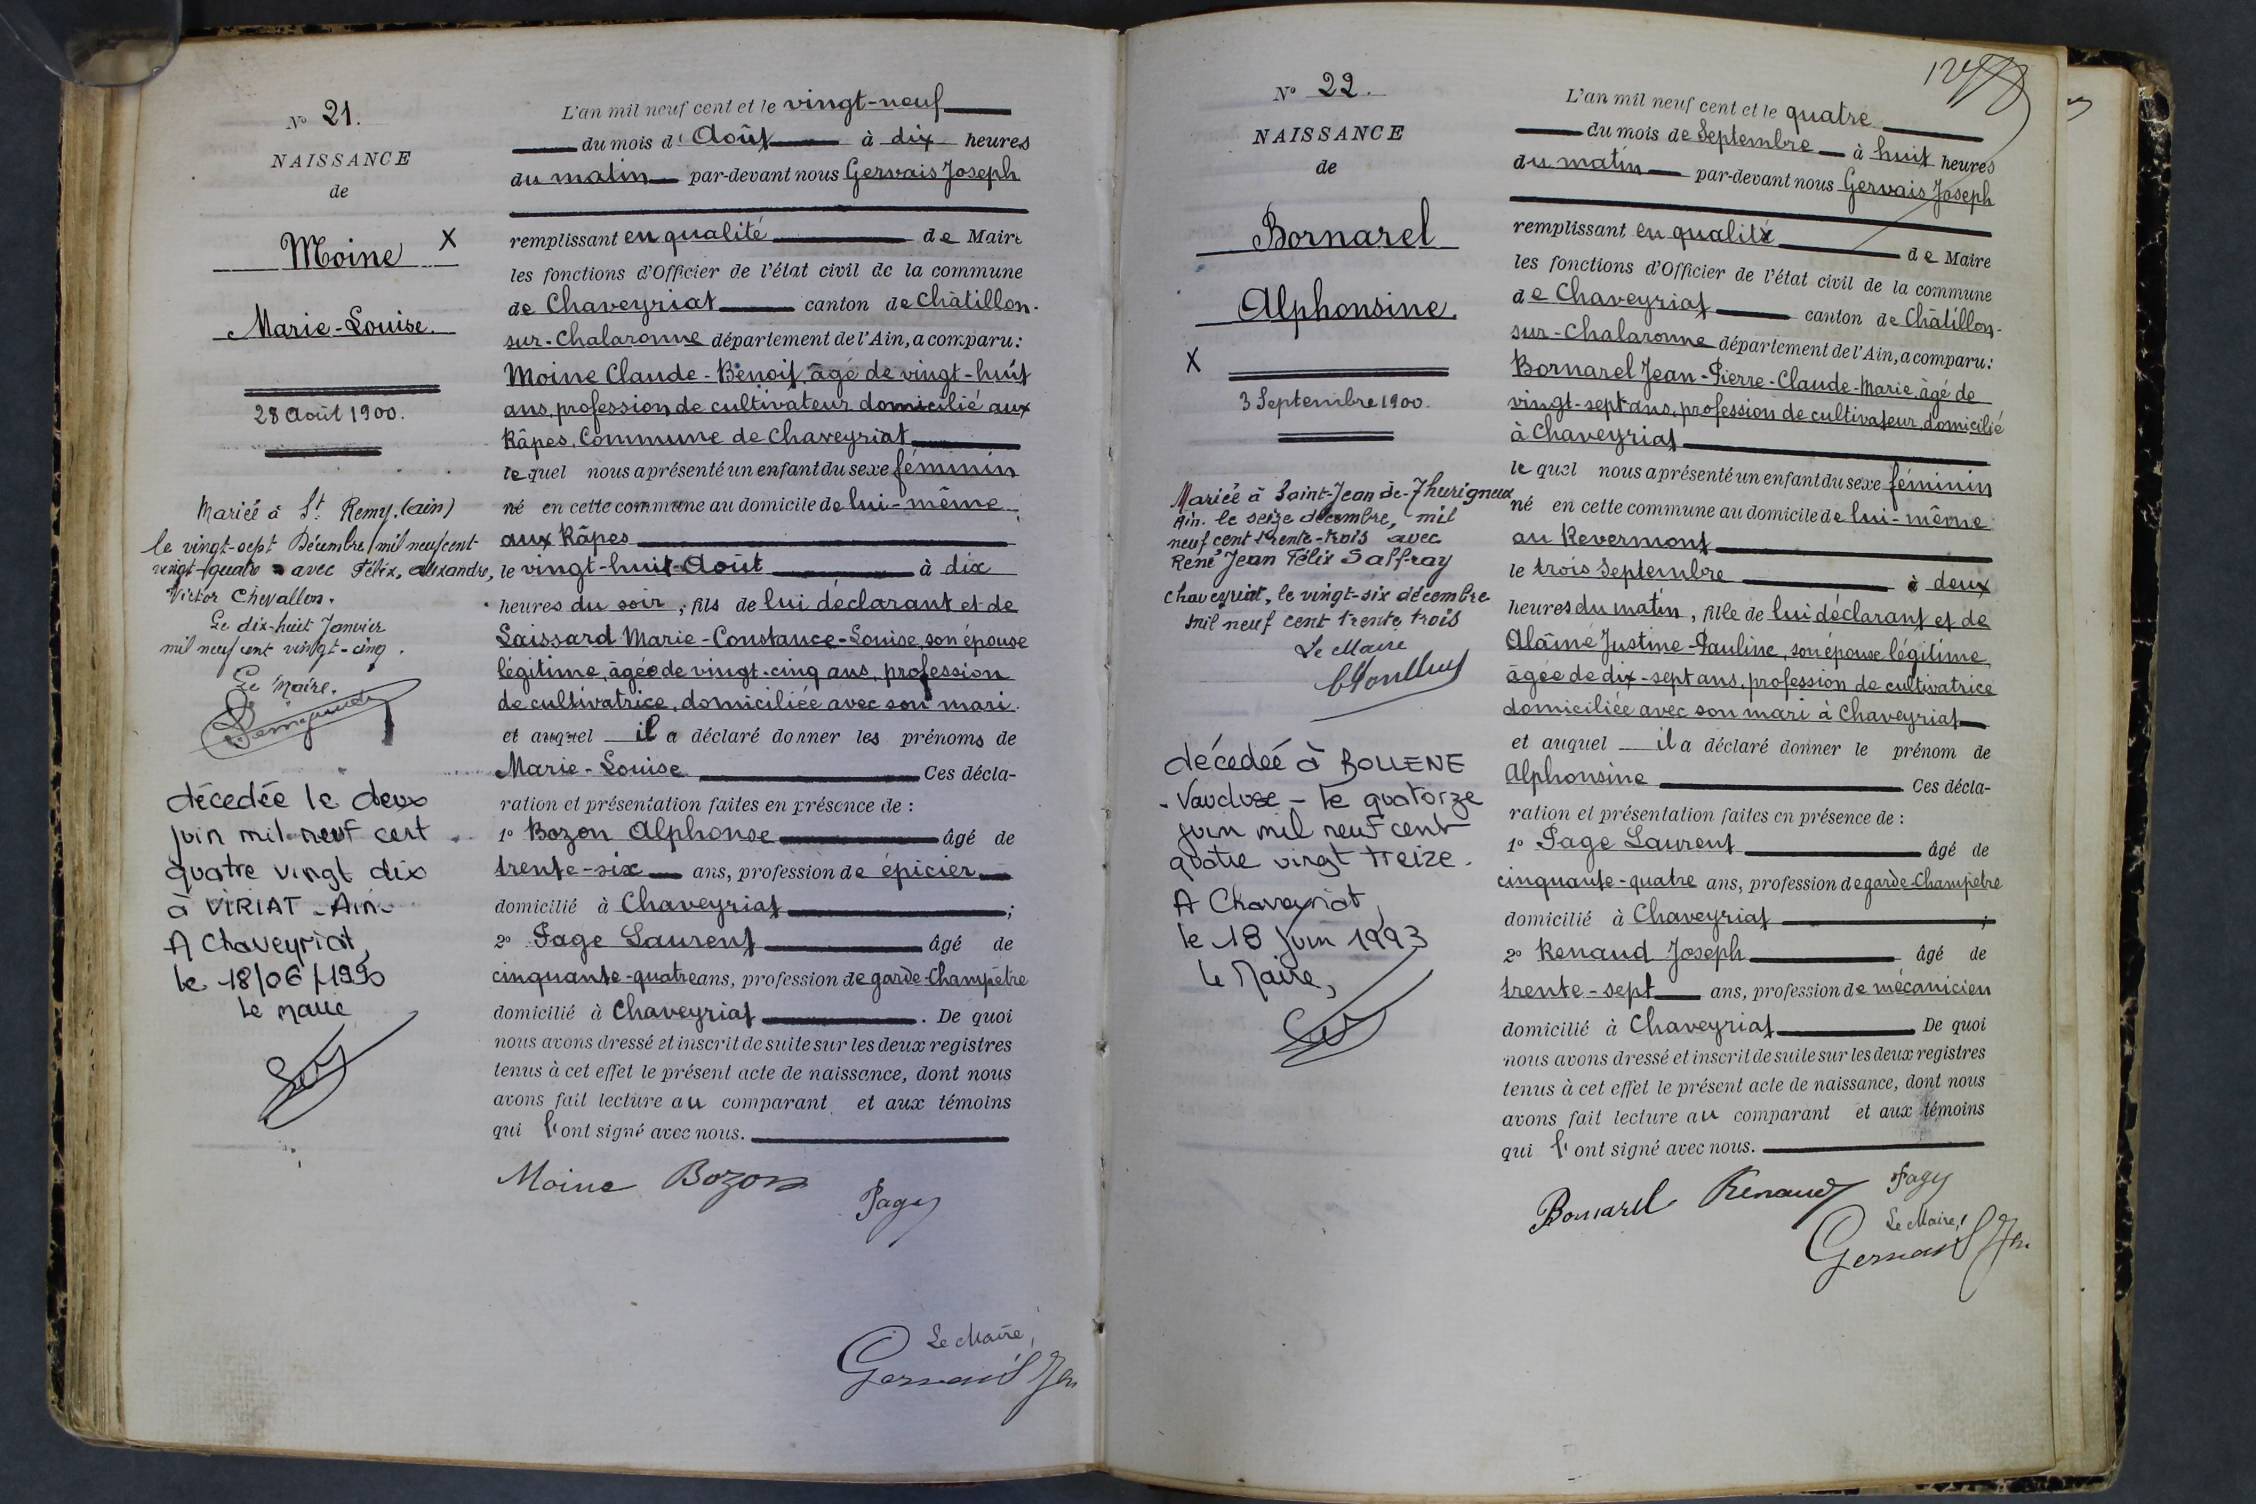 N° 21.
NAISSANCE
de
Moine X
Marie-Louise.
28 Août 1900.
Mariée à St Remy. (ain)
le vingt-sept Décembre mil neuf cent
vingt-quatre avec Félix, alexandre,
Victor Chevallon.
Le dix-huit Janvier
mil neuf cent vingt-cinq.
Le Maire.
décedée le deux
juin mil neuf cent
quatre vingt dix
à VIRIAT - Ain-
A Chaveyriat,
le 18/06/1990
Le Maire
L'an mil neuf cent et le vingt-neuf
du mois d'Août à dix heures
du matin par-devant nous Gervais Joseph
remplissant en qualité de Maire
les fonctions d'Officier de l'état civil de la commune
de Chaveyriat canton de Châtillon-
sur-Chalaronne département de l'Ain, a comparu:
Moine Claude-Benoit, âgé de vingt-huit
ans, profession de cultivateur domicilié aux
Râpes, Commune de Chaveyriat
lequel nous a présenté un enfant du sexe féminin
né en cette commune au domicile de lui-même
aux Râpes
le vingt-huit Août à dix
heures du soir, fils de lui déclarant et de
Laissard Marie-Constance-Louise, son épouse
légitime, âgée de vingt-cinq ans, profession
de cultivatrice, domiciliée avec son mari.
et auquel il a déclaré donner les prénoms de
Marie-Louise Ces décla-
ration et présentation faites en présence de :
1° Bozon Alphonse âgé de
trente-six ans, profession de épicier
domicilié à Chaveyriat ;
2° Page Laurent âgé de
cinquante-quatre ans, profession de garde-Champêtre
domicilié à Chaveyriat . De quoi
nous avons dressé et inscrit de suite sur les deux registres
tenus à cet effet le présent acte de naissance, dont nous
avons fait lecture au comparant et aux témoins
qui l'ont signé avec nous.
Moine Bozon
Page
Le Maire,
Gervais Jh
N° 22.
NAISSANCE
de
Bornarel
Alphonsine.
X
3 Septembre 1900.
Mariée à Saint-Jean-de-Thurigneux
Ain. le seize décembre, mil
neuf cent trente-trois avec
René Jean Félix Saffray
Chaveyriat, le vingt-six décembre
mil neuf cent trente trois
Le Maire
décedeé à BOLLENE
- Vaucluse - le quatorze
juin mil neuf cent
quatre vingt treize.
A Chaveyriat,
le 18 Juin 1993
Le Maire,
L'an mil neuf cent et le quatre
du mois de Septembre à huit heures
du matin par-devant nous Gervais Joseph
remplissant en qualité de Maire
les fonctions d'Officier de l'état civil de la commune
de Chaveyriat canton de Châtillon-
sur-Chalaronne département de l'Ain, a comparu:
Bornarel Jean-Pierre-Claude-Marie, âgé de
vingt-sept ans, profession de cultivateur, domicilié
à Chaveyriat
lequel nous a présenté un enfant du sexe féminin
né en cette commune au domicile de lui-même
au Revermont
le trois Septembre à deux
heures du matin, fille de lui déclarant et de
Alâmé Justine-Pauline, son épouse légitime,
âgée de dix-sept ans, profession de cultivatrice
domiciliée avec son mari à Chaveyriat
et auquel il a déclaré donner le prénom de
Alphonsine Ces décla-
ration et présentation faites en présence de :
1° Page Laurent âgé de
cinquante-quatre ans, profession de garde-Champêtre
domicilié à Chaveyriat ;
2° Renaud Joseph âgé de
trente-sept ans, profession de mécanicien
domicilié à Chaveyriat De quoi
nous avons dressé et inscrit de suite sur les deux registres
tenus à cet effet le présent acte de naissance, dont nous
avons fait lecture au comparant et aux témoins
qui l'ont signé avec nous.
Bornarel Renaud Page
Le Maire,
Gervais Jh